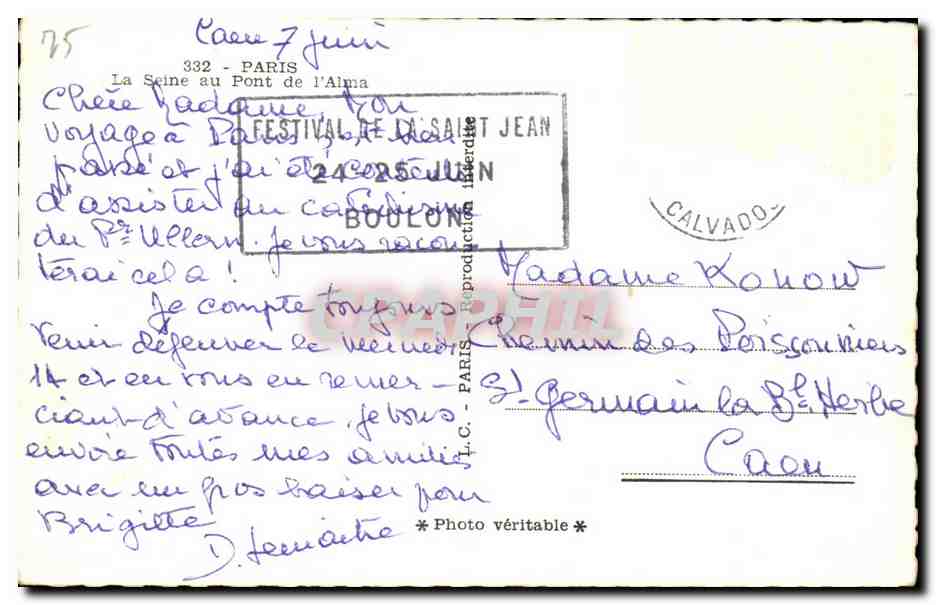 75
Caen 7 juin
332 - PARIS
La Seine au Pont de l'Alma
Chère Madame, Mon
voyage à Paris s'est bien
passé et j'ai été
d'assister au
du Pr. Ullern. Je vous racon
terai cela !
Je compte toujours
venir déjeuner le
14 et en vous en remer-
ciant d'avance, je vous
envoie toutes mes amitiés
avec un gros baiser pour
Brigitte
D. Lemaitre
FESTIVAL DE LA SAINT JEAN
24-25 JUIN
BOULON
L.C. - PARIS - Reproduction interdite
CALVADO
Madame Konow
Chemin des Poissonniers
St. Germain la Bl. Herbe
Caen
* Photo véritable *
CPAPHIL